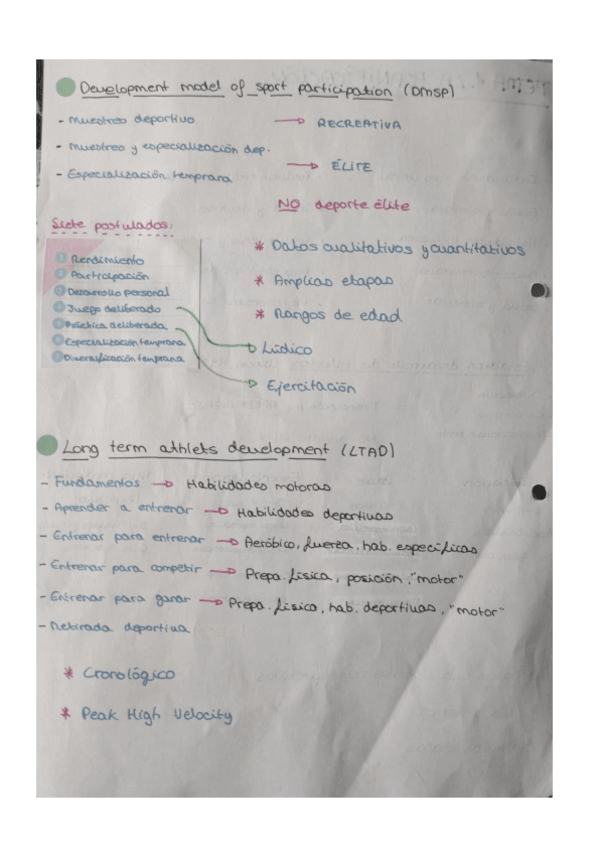 Development model of sport participation (DMSP)
- Muestreo deportivo → RECREATIVA
- Muestreo y especialización dep.
→ ÉLITE
- Especialización temprana
NO deporte élite
Siete postulados:
* Datos cualitativos y cuantitativos
Rendimiento
Participación
* Amplias etapas
Desarrollo personal
Juego deliberado
* Rangos de edad
Práctica deliberada
Especialización temprana
Lúdico
Diversificación temprana
Ejercitación
Long term athlets development (LTAD)
- Fundamentos → Habilidades motoras
- Aprender a entrenar → Habilidades deportivas
- Entrenar para entrenar → Aeróbico, fuerza, hab. específicas
- Entrenar para competir → Prepa. física, posición, "motor"
- Entrenar para ganar → Prepa. física, hab. deportivas, "motor"
- Retirada deportiva
* Cronológico
* Peak High Velocity